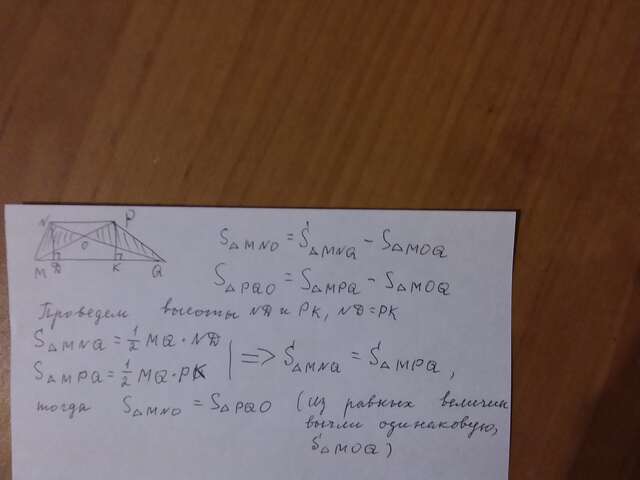 N P
O
M D K Q
S△MNO = S△MNQ − S△MOQ
S△PQO = S△MPQ − S△MOQ
Проведем высоты ND и PK, ND=PK
S△MNQ = 1/2 MQ · ND
S△MPQ = 1/2 MQ · PK | => S△MNQ = S△MPQ,
тогда S△MNO = S△PQO (из равных величин
вычли одинаковую,
S△MOQ)